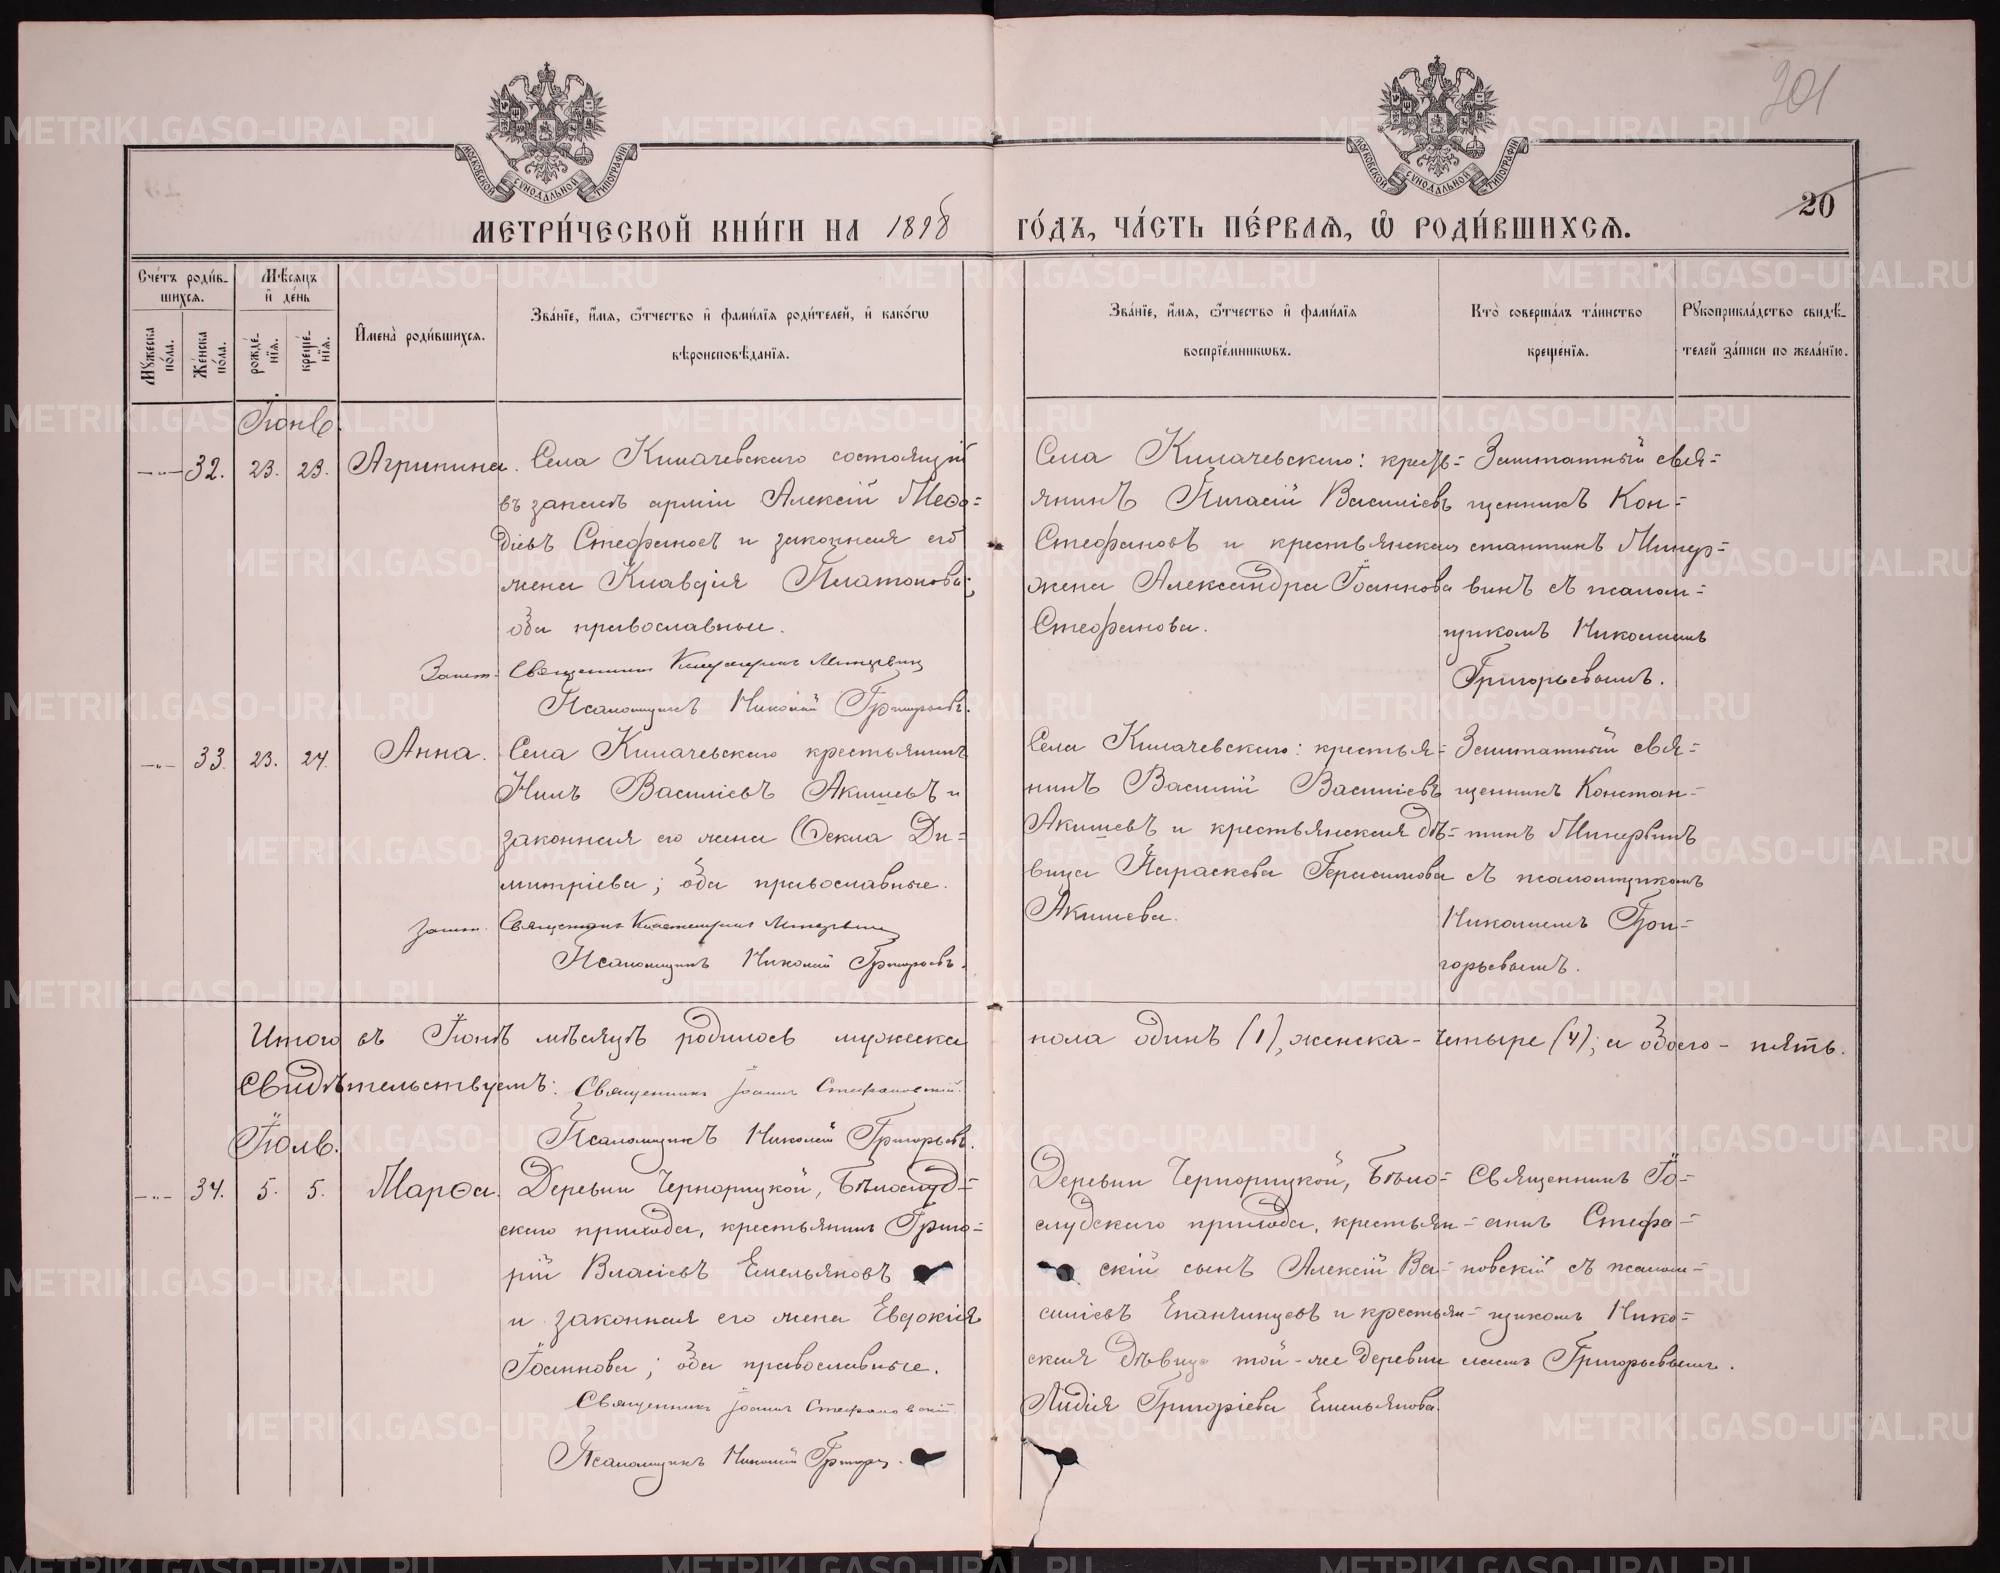 201
МОСКОВСКОЙ СѴНОДАЛЬНОЙ ТИПОГРАФІИ
МОСКОВСКОЙ СѴНОДАЛЬНОЙ ТИПОГРАФІИ
20
МЕТРИ́ЧЕСКОЙ КНИ́ГИ НА 1898 ГО́ДЪ, ЧА́СТЬ ПЕ́РВАѦ, Ѽ РОДИ́ВШИХСѦ.
Сче́тъ роди́в-
шихсѧ.
Мꙋ́жеска по́ла.
Же́нска по́ла.
Мѣ́сѧцъ и҆ де́нь
рожде́-нїѧ.
креще́-нїѧ.
И҆мена̀ роди́вшихсѧ.
Зва́нїе, и҆́мѧ, ѻ҆́тчество и҆ фами́лїѧ роди́телей, и҆ како́гѡ
вѣроисповѣ́данїѧ.
Зва́нїе, и҆́мѧ, ѻ҆́тчество и҆ фами́лїѧ
воспрїе́мникѡвъ.
Кто̀ соверша́лъ та́инство
креще́нїѧ.
Рꙋкоприкла́дство свидѣ́-
телей за́писи по жела́нїю.
Іюнь.
-„- 32. 23. 23. Агрипина. Села Килачевскаго состоящій
въ запасѣ арміи Алексій Меѳо-
діевъ Стефановъ и законная его
жена Клавдія Платонова;
оба православные.
Зашт. Священникъ Константинъ Минервинъ
Псаломщикъ Николай Григорьевъ.
Села Килачевскаго: кресть-
янинъ Пигасій Василіевъ
Стефановъ и крестьянская
жена Александра Іоаннова
Стефанова.
Заштатный свя-
щенникъ Кон-
стантинъ Минер-
винъ съ псалом-
щикомъ Николаемъ
Григорьевымъ.
-„- 33. 23. 24. Анна. Села Килачевскаго крестьянинъ
Нилъ Василіевъ Акишевъ и
законная его жена Ѳекла Ди-
митріева; оба православные.
Зашт. Священникъ Константинъ Минервинъ
Псаломщикъ Николай Григорьевъ.
Села Килачевскаго: крестья-
нинъ Василій Василіевъ
Акишевъ и крестьянская дѣ-
вица Параскева Герасимова
Акишева.
Заштатный свя-
щенникъ Констан-
тинъ Минервинъ
съ псаломщикомъ
Николаемъ Гри-
горьевымъ.
Итого въ Іюнѣ мѣсяцѣ родилось мужеска пола одинъ (1), женска - четыре (4); а обоего - пять.
Свидѣтельствуемъ: Священникъ Іоаннъ Стефановскій.
Псаломщикъ Николай Григорьевъ.
Іюль.
-„- 34. 5. 5. Марѳа. Деревни Чернорицкой, Бѣлослуд-
скаго прихода, крестьянинъ Григо-
рій Власіевъ Емельяновъ
и законная его жена Евдокія
Іоаннова; оба православные.
Священникъ Іоаннъ Стефановскій.
Псаломщикъ Николай Григорьев.
Деревни Чернорицкой, Бѣло-
слудскаго прихода, крестьян-
скій сынъ Алексій Ва-
силіевъ Епанчинцевъ и крестьян-
ская дѣвица той-же деревни
Лидія Григоріева Емельянова.
Священникъ Іо-
аннъ Стефа-
новскій съ псалом-
щикомъ Нико-
лаемъ Григорьевымъ.
METRIKI.GASO-URAL.RU